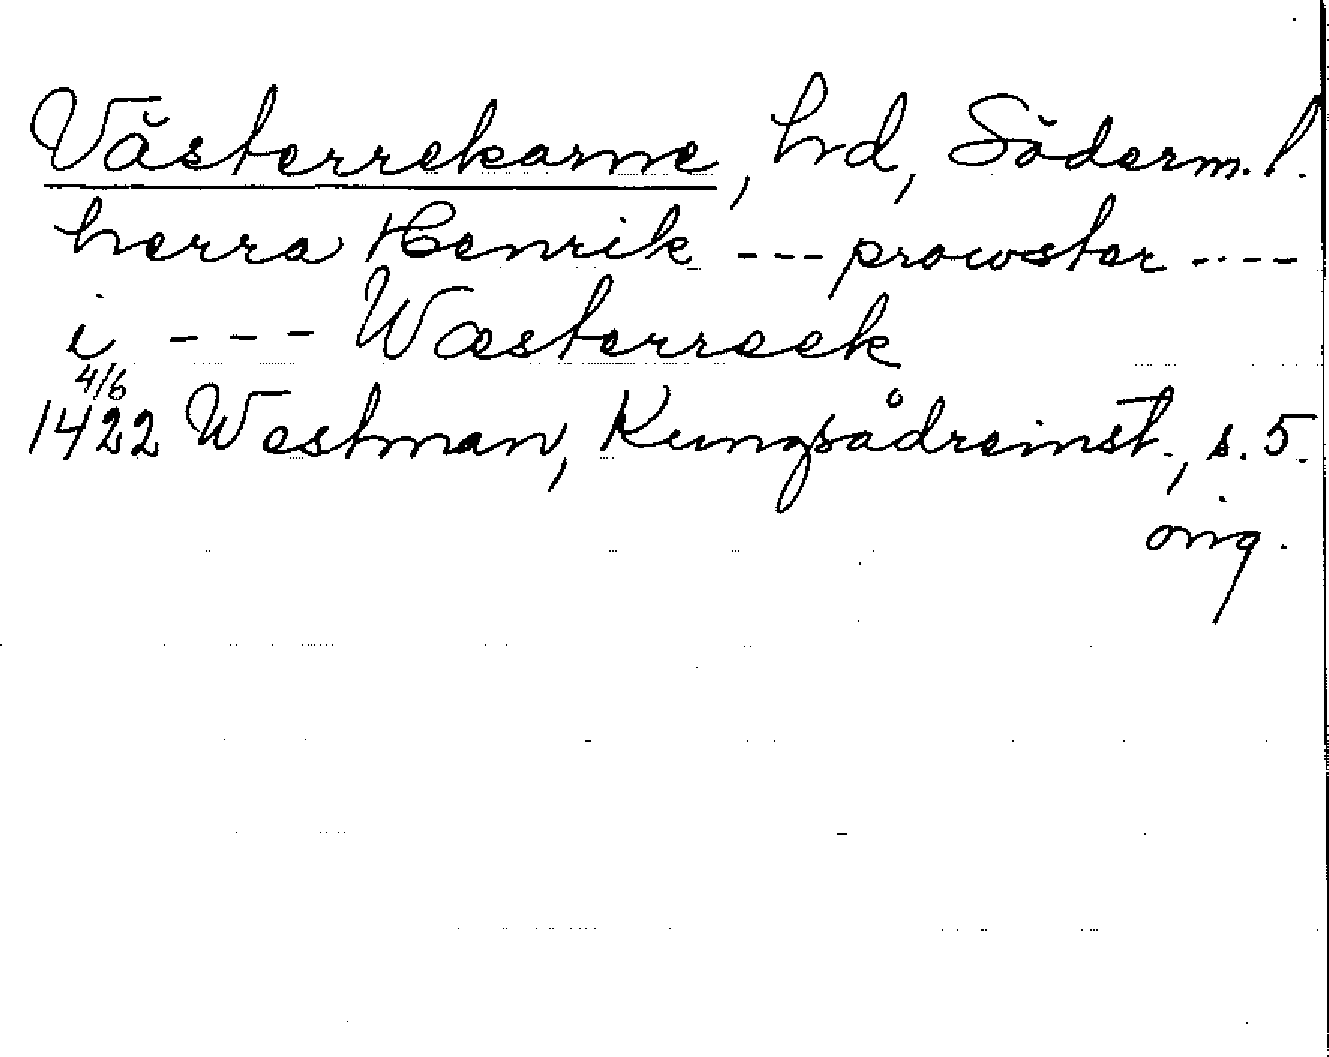 Västerrekarne, hrd, Söderm. l.
herra Henrik --- prowster ----
i --- Wæsterreek
4/6
1422 Westman, Kungsådreinst., s. 5.
orig.